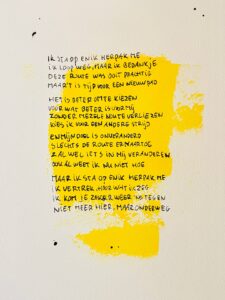 IK STA OP EN IK HERPAK ME
IK LOOP WEG, MAAR IK BEDANK JE
DEZE ROUTE WAS OOIT PRACHTIG
MAAR 'T IS TIJD VOOR EEN NIEUW PAD
HET IS BETER OM TE KIEZEN
VOOR WAT BETER IS VOOR MIJ
ZONDER MEZELF NOU TE VERLIEZEN
KIES IK VOOR EEN ANDERE STRIJD
EN MIJN DOEL IS ONVERANDERD
SLECHTS DE ROUTE ERNAARTOE
ZAL WEL IETS IN MIJ VERANDEREN
OOK AL WEET IK NU NIET HOE
MAAR IK STA OP EN IK HERPAK ME
IK VERTREK, HOOR WAT IK ZEG
IK KOM JE ZEKER WEER 'NS TEGEN
NIET MEER HIER, MAAR ONDERWEG